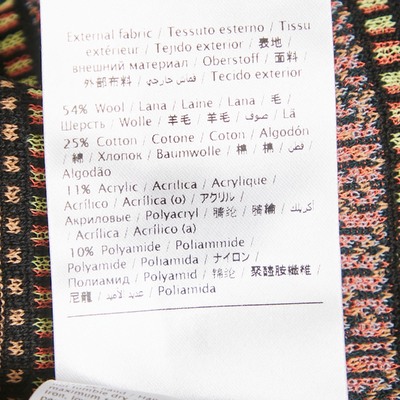 External fabric / Tessuto esterno / Tissu
extérieur / Tejido exterior / 表地 /
внешний материал / Oberstoff / 面料 /
外部布料 / قماش خارجي / Tecido exterior
54% Wool / Lana / Laine / Lana / 毛 /
Шерсть / Wolle / 羊毛 / 羊毛 / صوف / Lã
25% Cotton / Cotone / Coton / Algodón
/ 綿 / Хлопок / Baumwolle / 棉 / 棉 / قطن /
Algodão
11% Acrylic / Acrilica / Acrylique /
Acrílico / Acrílico (o) / アクリル /
Акриловые / Polyacryl / 腈纶 / 腈綸 / أكريليك
/ Acrílica / Acrílico (a)
10% Polyamide / Poliammide /
Polyamide / Poliamida / ナイロン /
Полиамид / Polyamid / 锦纶 / 聚醯胺纖維 /
尼龍 / عديد الأميد / Poliamida
tumble dry
maximum
iron,